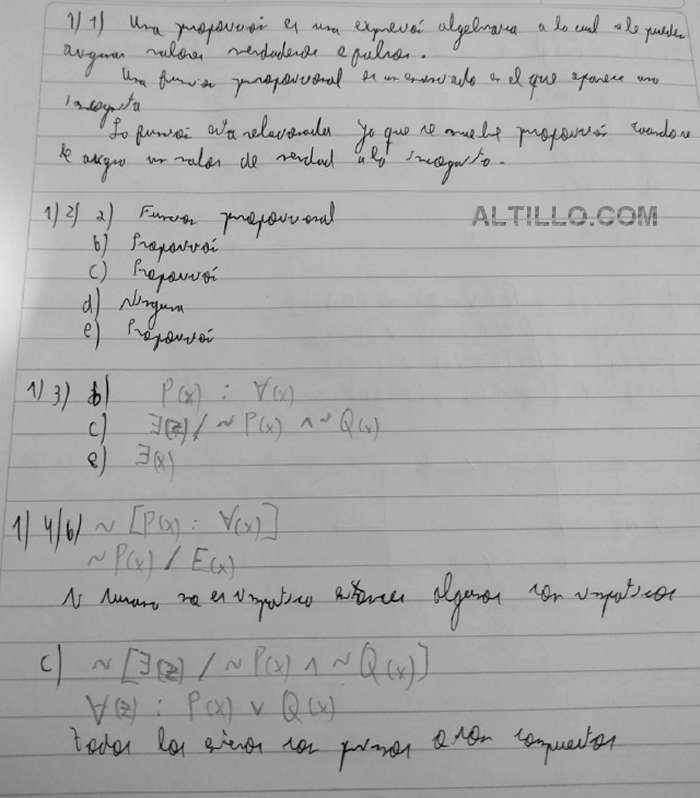 1) 1) Una proposición es una expresión algebraica a la cual se le pueden
asignar valores verdaderos o falsos.
Una función proposicional es un enunciado en el que aparece una
incógnita
La función está relacionada ya que se vuelve proposición cuando se
le asigna un valor de verdad a la incógnita.
1) 2) a) Función proposicional
ALTILLO.COM
b) Proposición
c) Proposición
d) Ninguna
e) Proposición
1) 3) b) P(x) : ∀(x)
c) ∃(z) / ~ P(x) ∧ ~ Q(x)
e) ∃(x)
1) 4) b) ~ [P(x) : ∀(x)]
~ P(x) / E(x)
no es simpático entonces algunos son simpáticos
c) ~ [∃(z) / ~ P(x) ∧ ~ Q(x)]
∀(z) : P(x) ∨ Q(x)
todos los enteros son primos o son compuestos